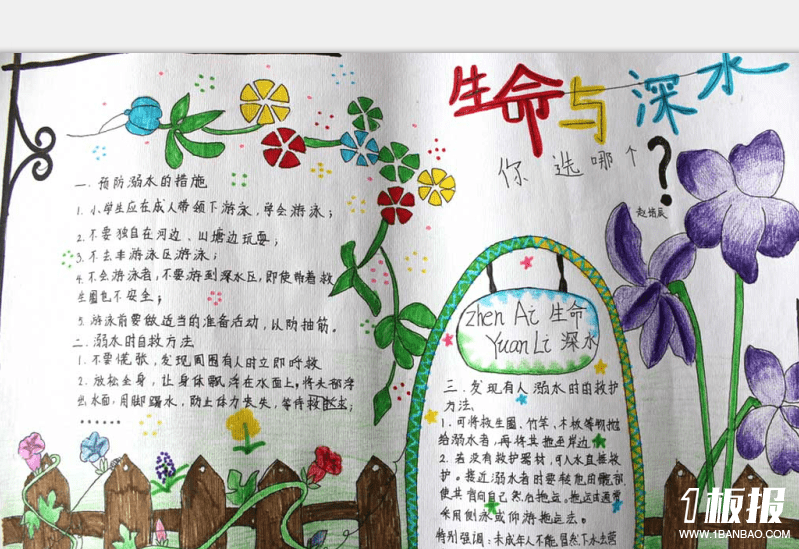 生命与深水
你选哪个?
一. 预防溺水的措施
1. 小学生应在成人带领下游泳，学会游泳；
2. 不要独自在河边、山塘边玩耍；
3. 不去非游泳区游泳；
4. 不会游泳者，不要游到深水区，即使带着救
生圈也不安全；
5. 游泳前要做适当的准备活动，以防抽筋。
二. 溺水时自救方法
1. 不要慌张，发现周围有人时立即呼救
2. 放松全身，让身体飘浮在水面上，将头部浮
出水面，用脚踢水，防止体力丧失，等待救；
......
zhen Ai 生命
Yuan Li 深水
三. 发现有人溺水时的救护
方法.
1. 可将救生圈、竹竿、木板等物抛
给溺水者，再将其拖至岸边
2. 若没有救护器材，可入水直接救
护。接近溺水者时要转
使其背向自己然后拖运。拖运时通常
采用侧泳或仰游拖运法。
特别强调：未成年人不能冒然下水去营
1板报
WWW.1BANBAO.COM